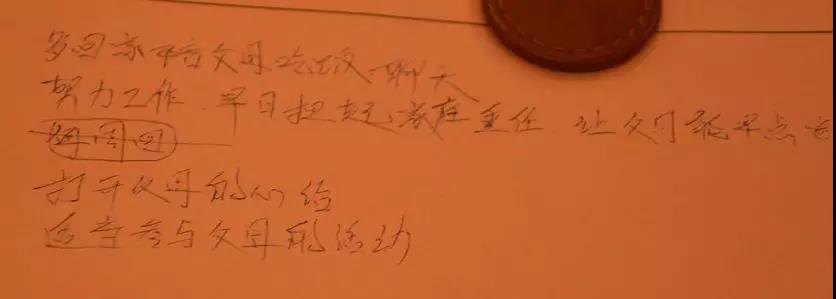 多回家陪父母吃饭、聊天
努力工作、早日担起家庭重任 让父母能早点
打开父母的心结
适当参与父母的活动